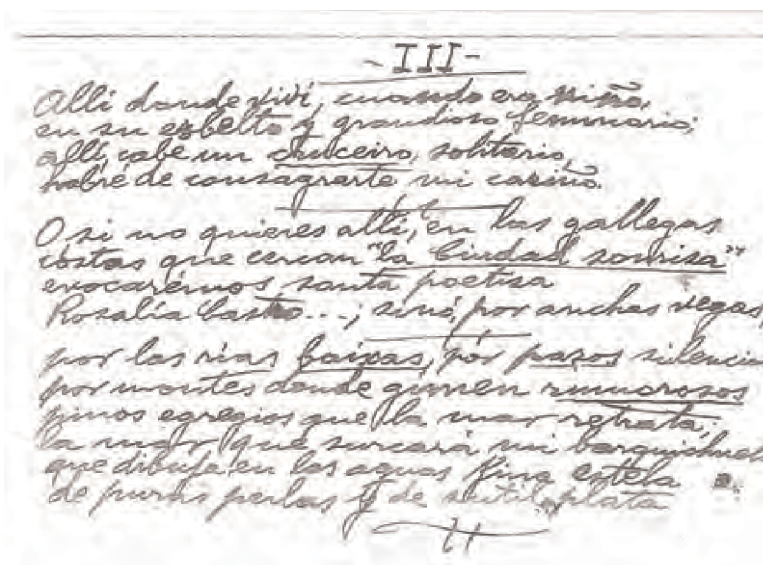 - III -
Alli donde viví, cuando era niño,
en su esbelto y grandioso Seminario;
allí, cabe un cruceiro, solitario,
habré de consagrarte mi cariño.
O si no quieres allí, en las gallegas
costas que cercan "la Ciudad sonrisa"
evocarémos santa poetisa
Rosalía Castro...; sinó, por anchas vegas,
por las rias baixas, por pazos silencio
por montes donde gimen rumorosos
pinos egregios que la mar retrata;
la mar que surcará mi barquichuel
que dibuja en las aguas fina estela
de puras perlas y de sutil plata